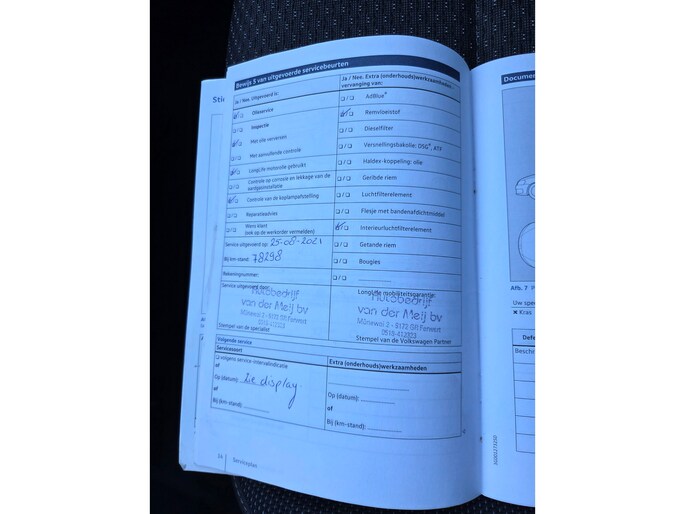 Bewijs 5 van uitgevoerde servicebeurten
Ja / Nee. Uitgevoerd is:
Olieservice
Inspectie
Met olie verversen
Met aanvullende controle
LongLife motorolie gebruikt
Controle op corrosie en lekkage van de
aardgasinstallatie
Controle van de koplampafstelling
Reparatieadvies
Wens klant
(ook op de werkorder vermelden)
Service uitgevoerd op: 25-08-2021
Bij km-stand: 78298
Rekeningnummer:
Service uitgevoerd door:
Autobedrijf
van der Meij bv
Stempel van de specialist
Ja / Nee. Extra (onderhouds)werkzaamheden
vervanging van:
AdBlue®
Remvloeistof
Dieselfilter
Versnellingsbakolie: DSG®, ATX
Haldex-koppeling: olie
Geribde riem
Luchtfilterelement
Flesje met bandenafdichtmiddel
Interieurluchtfilterelement
Getande riem
Bougies
LongLife mobiliteitsgarantie:
Autobedrijf
van der Meij bv
Stempel van de Volkswagen Partner
Volgende service
Servicesoort
volgens service-intervalindicatie
of
Op (datum): Zie display
of
Bij (km-stand):
Extra (onderhouds)werkzaamheden
Op (datum):
of
Bij (km-stand):
14 Serviceplan
Documen
Afb. 7
Uw spe
Kras
Defe
Beschri